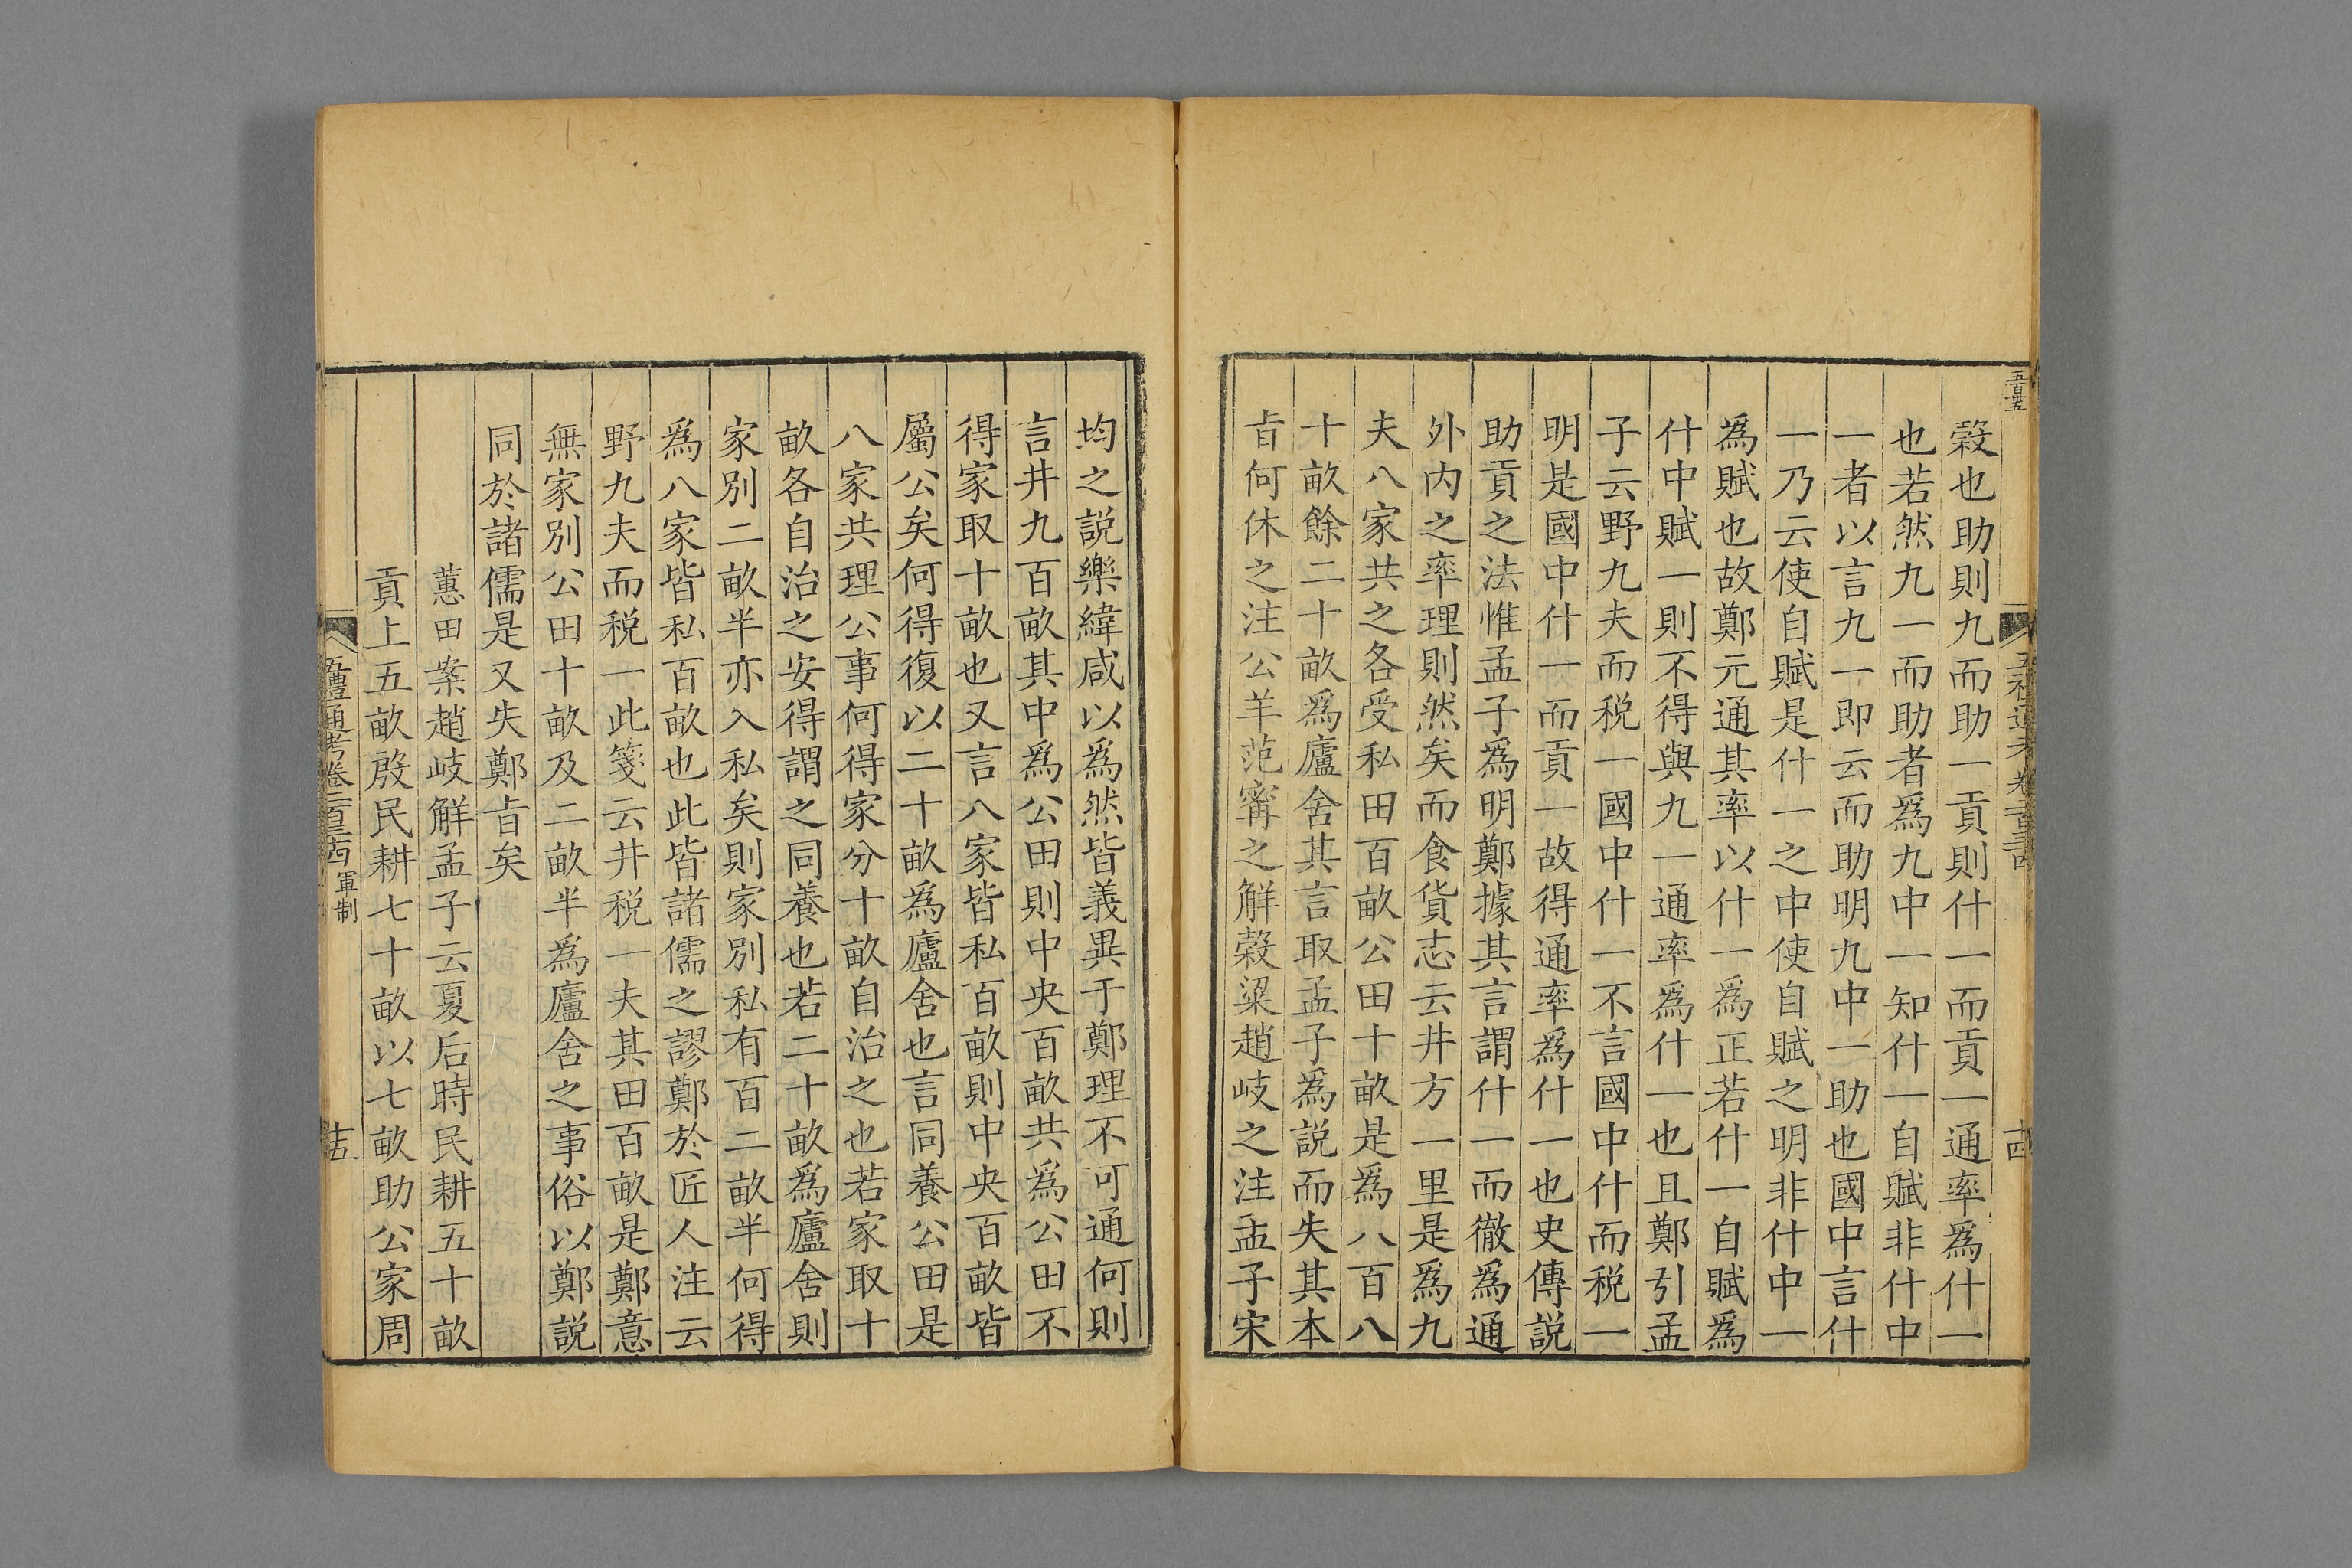 五百五
五禮通考卷二百三十四
十四
穀也助則九而助一貢則什一而貢一通率爲什一
也若然九一而助者爲九中一知什一自賦非什中
一者以言九一即云而助明九中一助也國中言什
一乃云使自賦是什一之中使自賦之明非什中一
爲賦也故鄭元通其率以什一爲正若什一自賦爲
什中賦一則不得與九一通率爲什一也且鄭引孟
子云野九夫而税一國中什一不言國中什而税一
明是國中什一而貢一故得通率爲什一也史傳説
助貢之法惟孟子爲明鄭據其言謂什一而徹爲通
外内之率理則然矣而食貨志云井方一里是爲九
夫八家共之各受私田百畝公田十畝是爲八百八
十畝餘二十畝爲廬舍其言取孟子爲説而失其本
㫖何休之注公羊范寗之解穀粱趙岐之注孟子宋
均之説樂緯咸以爲然皆義異于鄭理不可通何則
言井九百畝其中爲公田則中央百畝共爲公田不
得家取十畝也又言八家皆私百畝則中央百畝皆
屬公矣何得復以二十畝爲廬舍也言同養公田是
八家共理公事何得家分十畝自治之也若家取十
畝各自治之安得謂之同養也若二十畝爲廬舍則
家別二畝半亦入私矣則家別私有百二畝半何得
爲八家皆私百畝也此皆諸儒之謬鄭於匠人注云
野九夫而税一此箋云井税一夫其田百畝是鄭意
無家別公田十畝及二畝半爲廬舍之事俗以鄭説
同於諸儒是又失鄭㫖矣
蕙田案趙岐解孟子云夏后時民耕五十畝
貢上五畝殷民耕七十畝以七畝助公家周
五禮通考卷二百三十四 軍制
十五